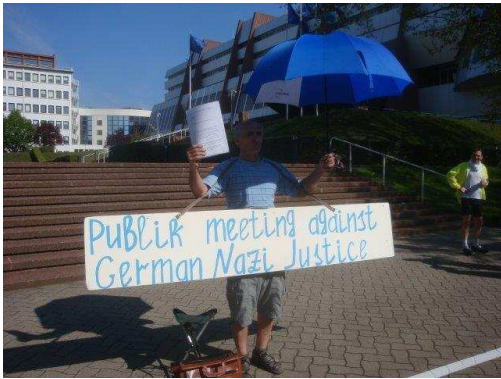 Publik meeting against
German Nazi Justice